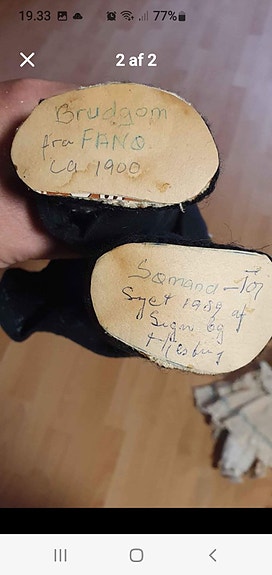 19.33
77%
2 af 2
Brudgom
fra FANØ
ca 1900
Sømand - Tøj
Syet 1989 af
Signe og